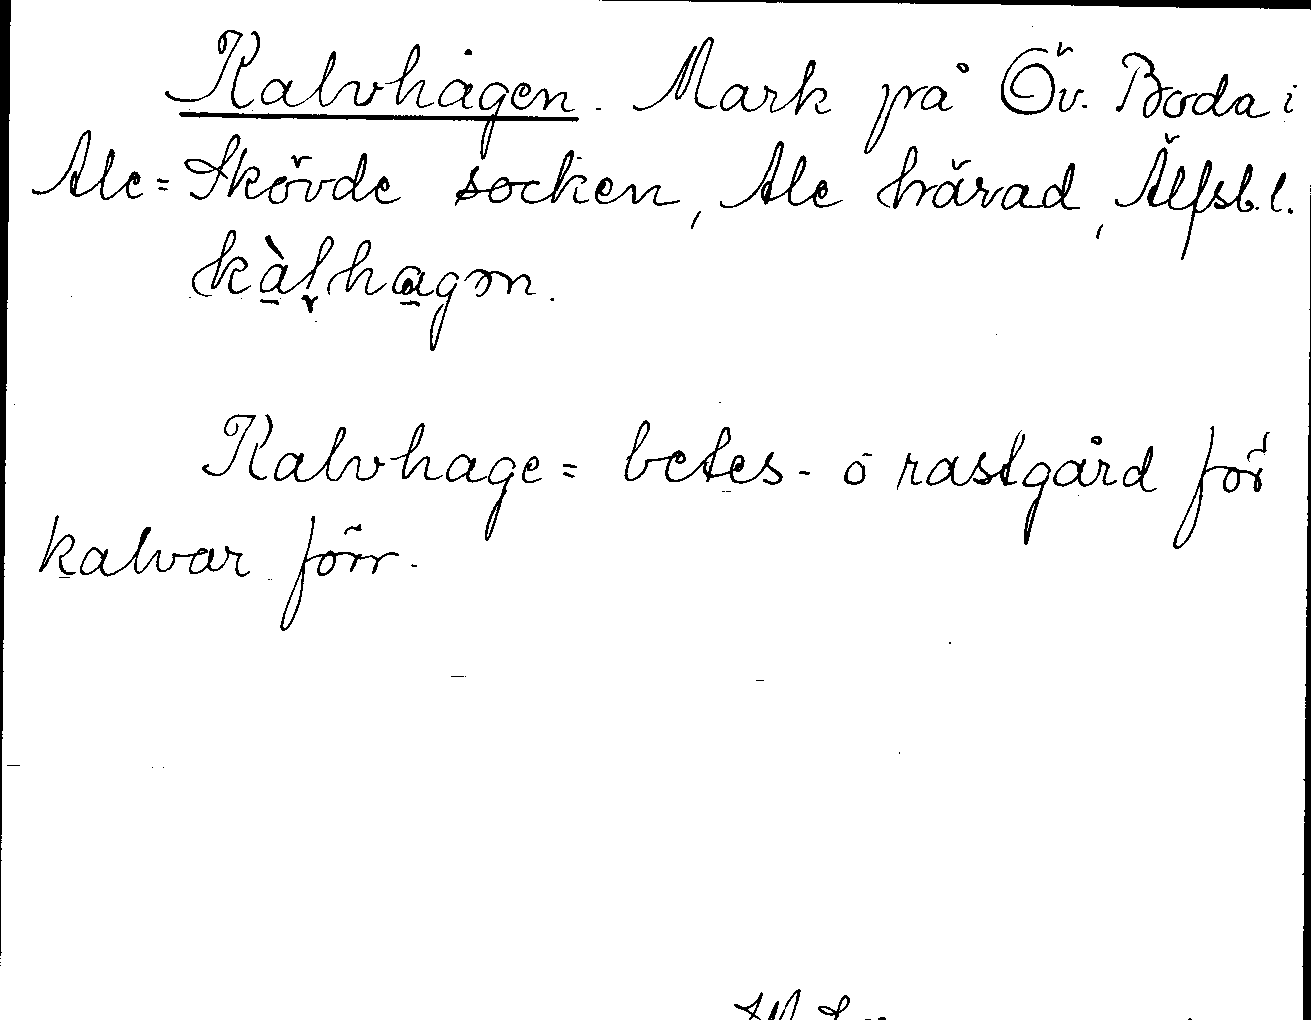 Kalvhagen. Mark på Öv. Boda i
Ale=Skövde socken, Ale härad, Älfsb.l.
kàlhagən.
Kalvhage = betes- o rastgård för
kalvar förr.